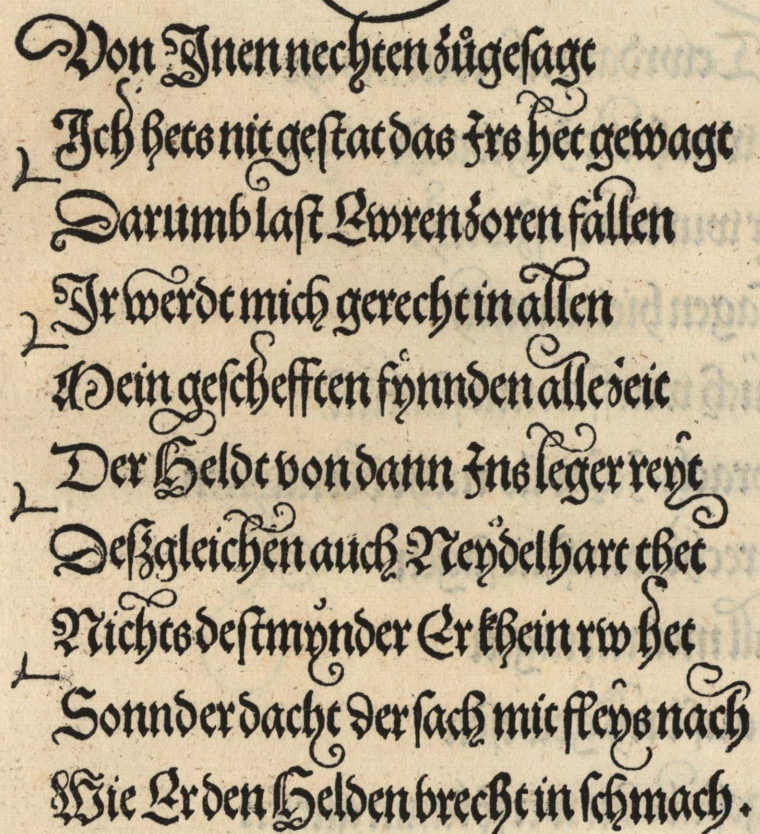 Von Jnen nechten zůgesagt
Jch hets nit gestat das Jrs het gewagt
Darumb last Ewren zoren fallen
Jr werdt mich gerecht in allen
Mein geschefften fynnden allezeit
Der Heldt von dann Jns leger reyt
Deſzgleichen auch Neydelhart thet
Nichts destmynder Er khein rw het
Sonnder dacht der sach mit fleys nach
Wie Er den Helden brecht in schmach.